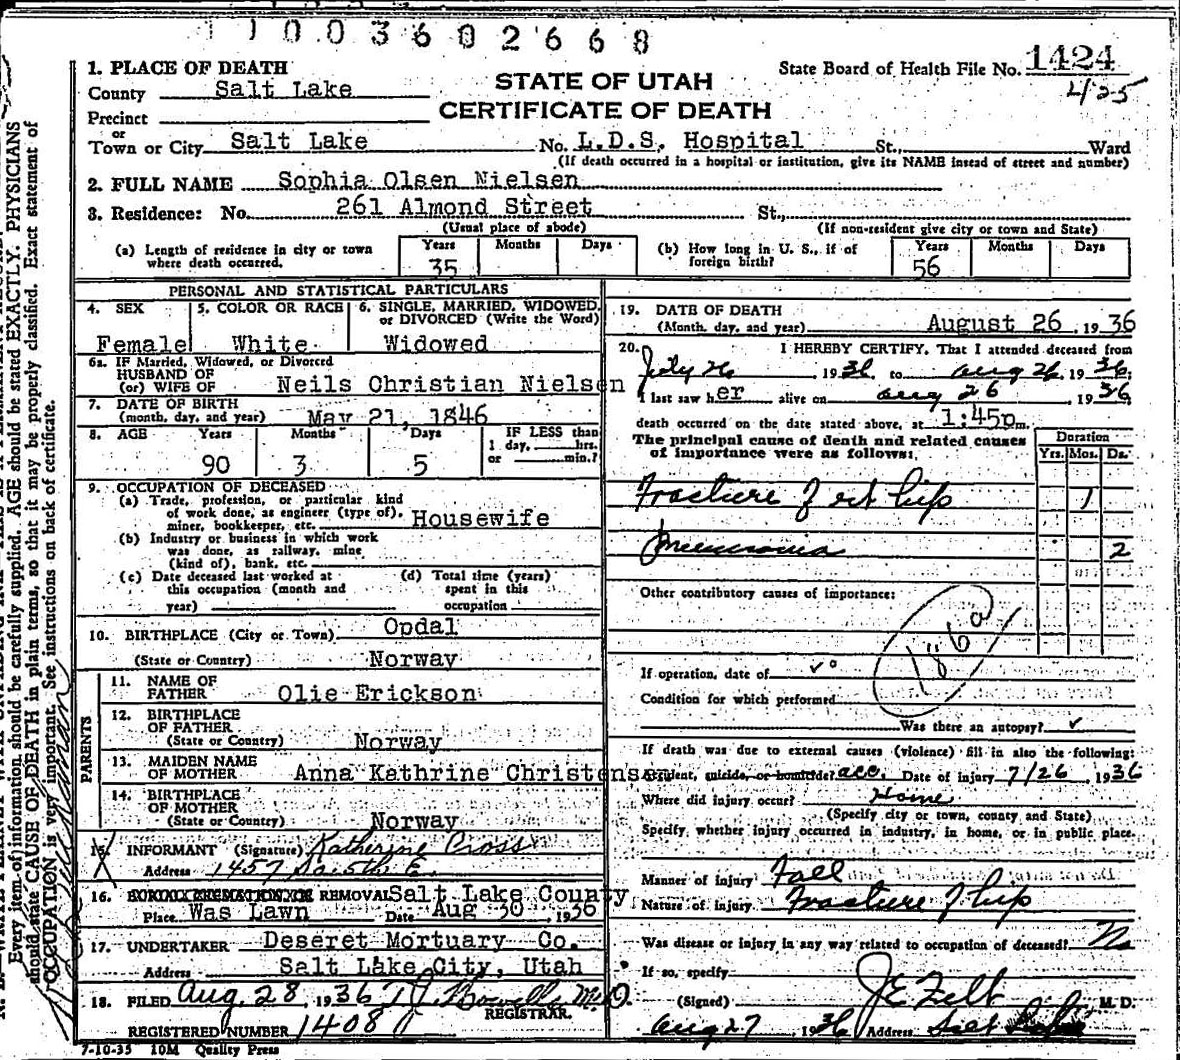 1003602668
1. PLACE OF DEATH
STATE OF UTAH
CERTIFICATE OF DEATH
State Board of Health File No. 1424
4/25
County Salt Lake
Precinct
or
Town or City Salt Lake No. L.D.S. Hospital St., Ward
(If death occurred in a hospital or institution, give its NAME instead of street and number)
2. FULL NAME Sophia Olsen Nielsen
3. Residence: No. 261 Almond Street St.,
(Usual place of abode) (If non-resident give city or town and State)
(a) Length of residence in city or town where death occurred. Years 35 Months Days
(b) How long in U. S., if of foreign birth? Years 56 Months Days
PERSONAL AND STATISTICAL PARTICULARS
4. SEX Female
5. COLOR OR RACE White
6. SINGLE, MARRIED, WIDOWED, or DIVORCED (Write the Word) Widowed
6a. IF Married, Widowed, or Divorced
HUSBAND OF
(or) WIFE OF Neils Christian Nielsen
7. DATE OF BIRTH
(month, day, and year) May 21, 1846
8. AGE Years 90 Months 3 Days 5 IF LESS than 1 day, hrs. or min.?
9. OCCUPATION OF DECEASED
(a) Trade, profession, or particular kind
of work done, as engineer (type of),
miner, bookkeeper, etc. Housewife
(b) Industry or business in which work
was done, as railway, mine
(kind of), bank, etc.
(c) Date deceased last worked at
this occupation (month and
year)
(d) Total time (years)
spent in this
occupation
10. BIRTHPLACE (City or Town) Opdal
(State or Country) Norway
PARENTS
11. NAME OF
FATHER Olie Erickson
12. BIRTHPLACE
OF FATHER
(State or Country) Norway
13. MAIDEN NAME
OF MOTHER Anna Kathrine Christensen
14. BIRTHPLACE
OF MOTHER
(State or Country) Norway
15. INFORMANT (Signature) Katherine Cross
Address 1457 So. 5th E.
16. BURIAL CREMATION OR REMOVAL Salt Lake County
Place Was Lawn Date Aug 30, 1936
17. UNDERTAKER Deseret Mortuary Co.
Address Salt Lake City, Utah
18. FILED Aug. 28, 1936 M.D.
REGISTRAR.
REGISTERED NUMBER 1408
7-10-35 10M Quality Press
19. DATE OF DEATH
(Month, day, and year) August 26, 1936
20. I HEREBY CERTIFY, That I attended deceased from
July 26, 1936, to Aug 26, 1936;
I last saw her alive on Aug 26 1936
death occurred on the date stated above, at 1:45p m.
The principal cause of death and related causes
of importance were as follows:
Duration
Yrs. Mos. Ds.
Fracture of rt hip 1
Pneumonia 2
Other contributory causes of importance:
186a
If operation, date of
Condition for which performed
Was there an autopsy?
If death was due to external causes (violence) fill in also the following:
Accident, suicide, or homicide? acc. Date of injury 7/26, 1936
Where did injury occur? Home
(Specify city or town, county and State)
Specify, whether injury occurred in industry, in home, or in public place.
Manner of injury Fall
Nature of injury Fracture of hip
Was disease or injury in any way related to occupation of deceased? No
If so, specify
(Signed) M. D.
Aug 27, 1936 Address Salt Lake
Every item of information should be carefully supplied. AGE should be stated EXACTLY. PHYSICIANS
should state CAUSE OF DEATH in plain terms, so that it may be properly classified. Exact statement of
OCCUPATION is very important. See instructions on back of certificate.